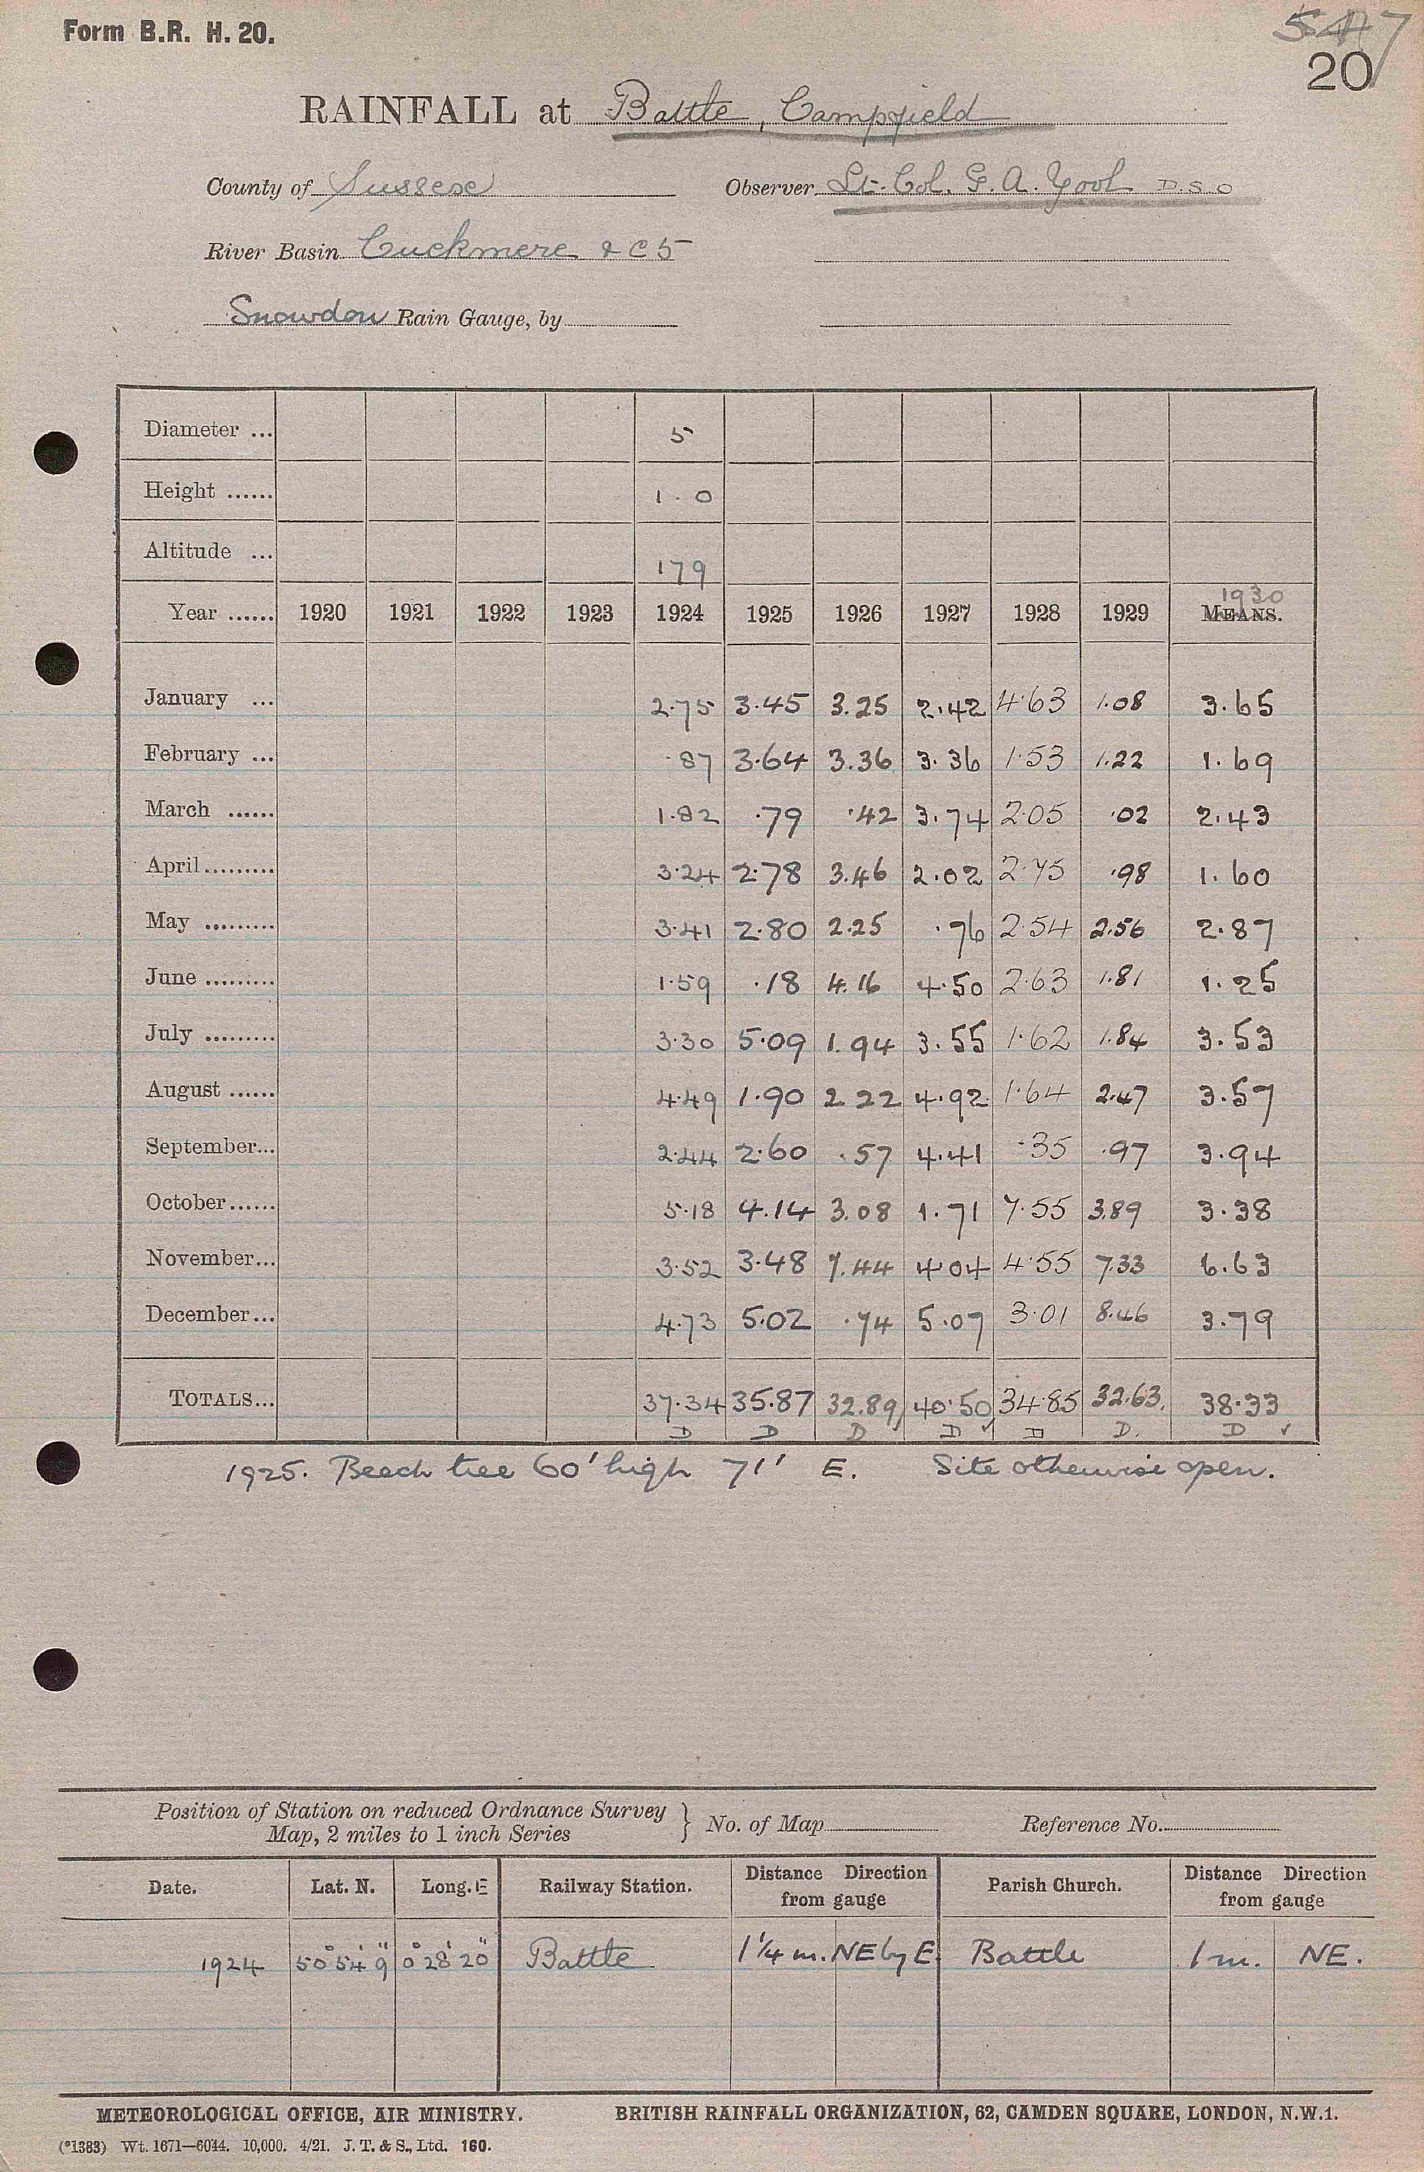 Form B.R. H. 20.
20
RAINFALL at Battle, Campfield
County of Sussex Observer Lt. Col. G. A. Yool D.S.O
River Basin Cuckmere & C5
Snowdon Rain Gauge, by
Diameter ... 5
Height ...... 1.0
Altitude ... 179
Year ...... 1920 1921 1922 1923 1924 1925 1926 1927 1928 1929 1930 MEANS.
January ... 2.75 3.45 3.25 2.42 4.63 1.08 3.65
February ... .87 3.64 3.36 3.36 1.53 1.22 1.69
March ...... 1.82 .79 .42 3.74 2.05 .02 2.43
April ......... 3.24 2.78 3.46 2.02 2.75 .98 1.60
May ......... 3.41 2.80 2.25 .76 2.54 2.56 2.87
June ......... 1.59 .18 4.16 4.50 2.63 1.81 1.25
July ......... 3.30 5.09 1.94 3.55 1.62 1.84 3.53
August ...... 4.49 1.90 2 22 4.92 1.64 2.47 3.57
September... 2.44 2.60 .57 4.41 .35 .97 3.94
October...... 5.18 4.14 3.08 1.71 7.55 3.89 3.38
November... 3.52 3.48 7.44 4.04 4.55 7.33 6.63
December... 4.73 5.02 .74 5.07 3.01 8.46 3.79
TOTALS... 37.34 35.87 32.89 40.50 34.85 32.63. 38.33
D D D D D D. D
1925. Beech tree 60' high 71' E. Site otherwise open.
Position of Station on reduced Ordnance Survey
Map, 2 miles to 1 inch Series } No. of Map Reference No.
Date. Lat. N. Long. E Railway Station. Distance Direction from gauge Parish Church. Distance Direction from gauge
1924 50° 54' 9" 0° 28' 20" Battle 1¼ m. NE by E. Battle 1 m. NE.
METEOROLOGICAL OFFICE, AIR MINISTRY. BRITISH RAINFALL ORGANIZATION, 62, CAMDEN SQUARE, LONDON, N.W.1.
(*1383) Wt. 1671—6044. 10,000. 4/21. J. T. & S., Ltd. 160.